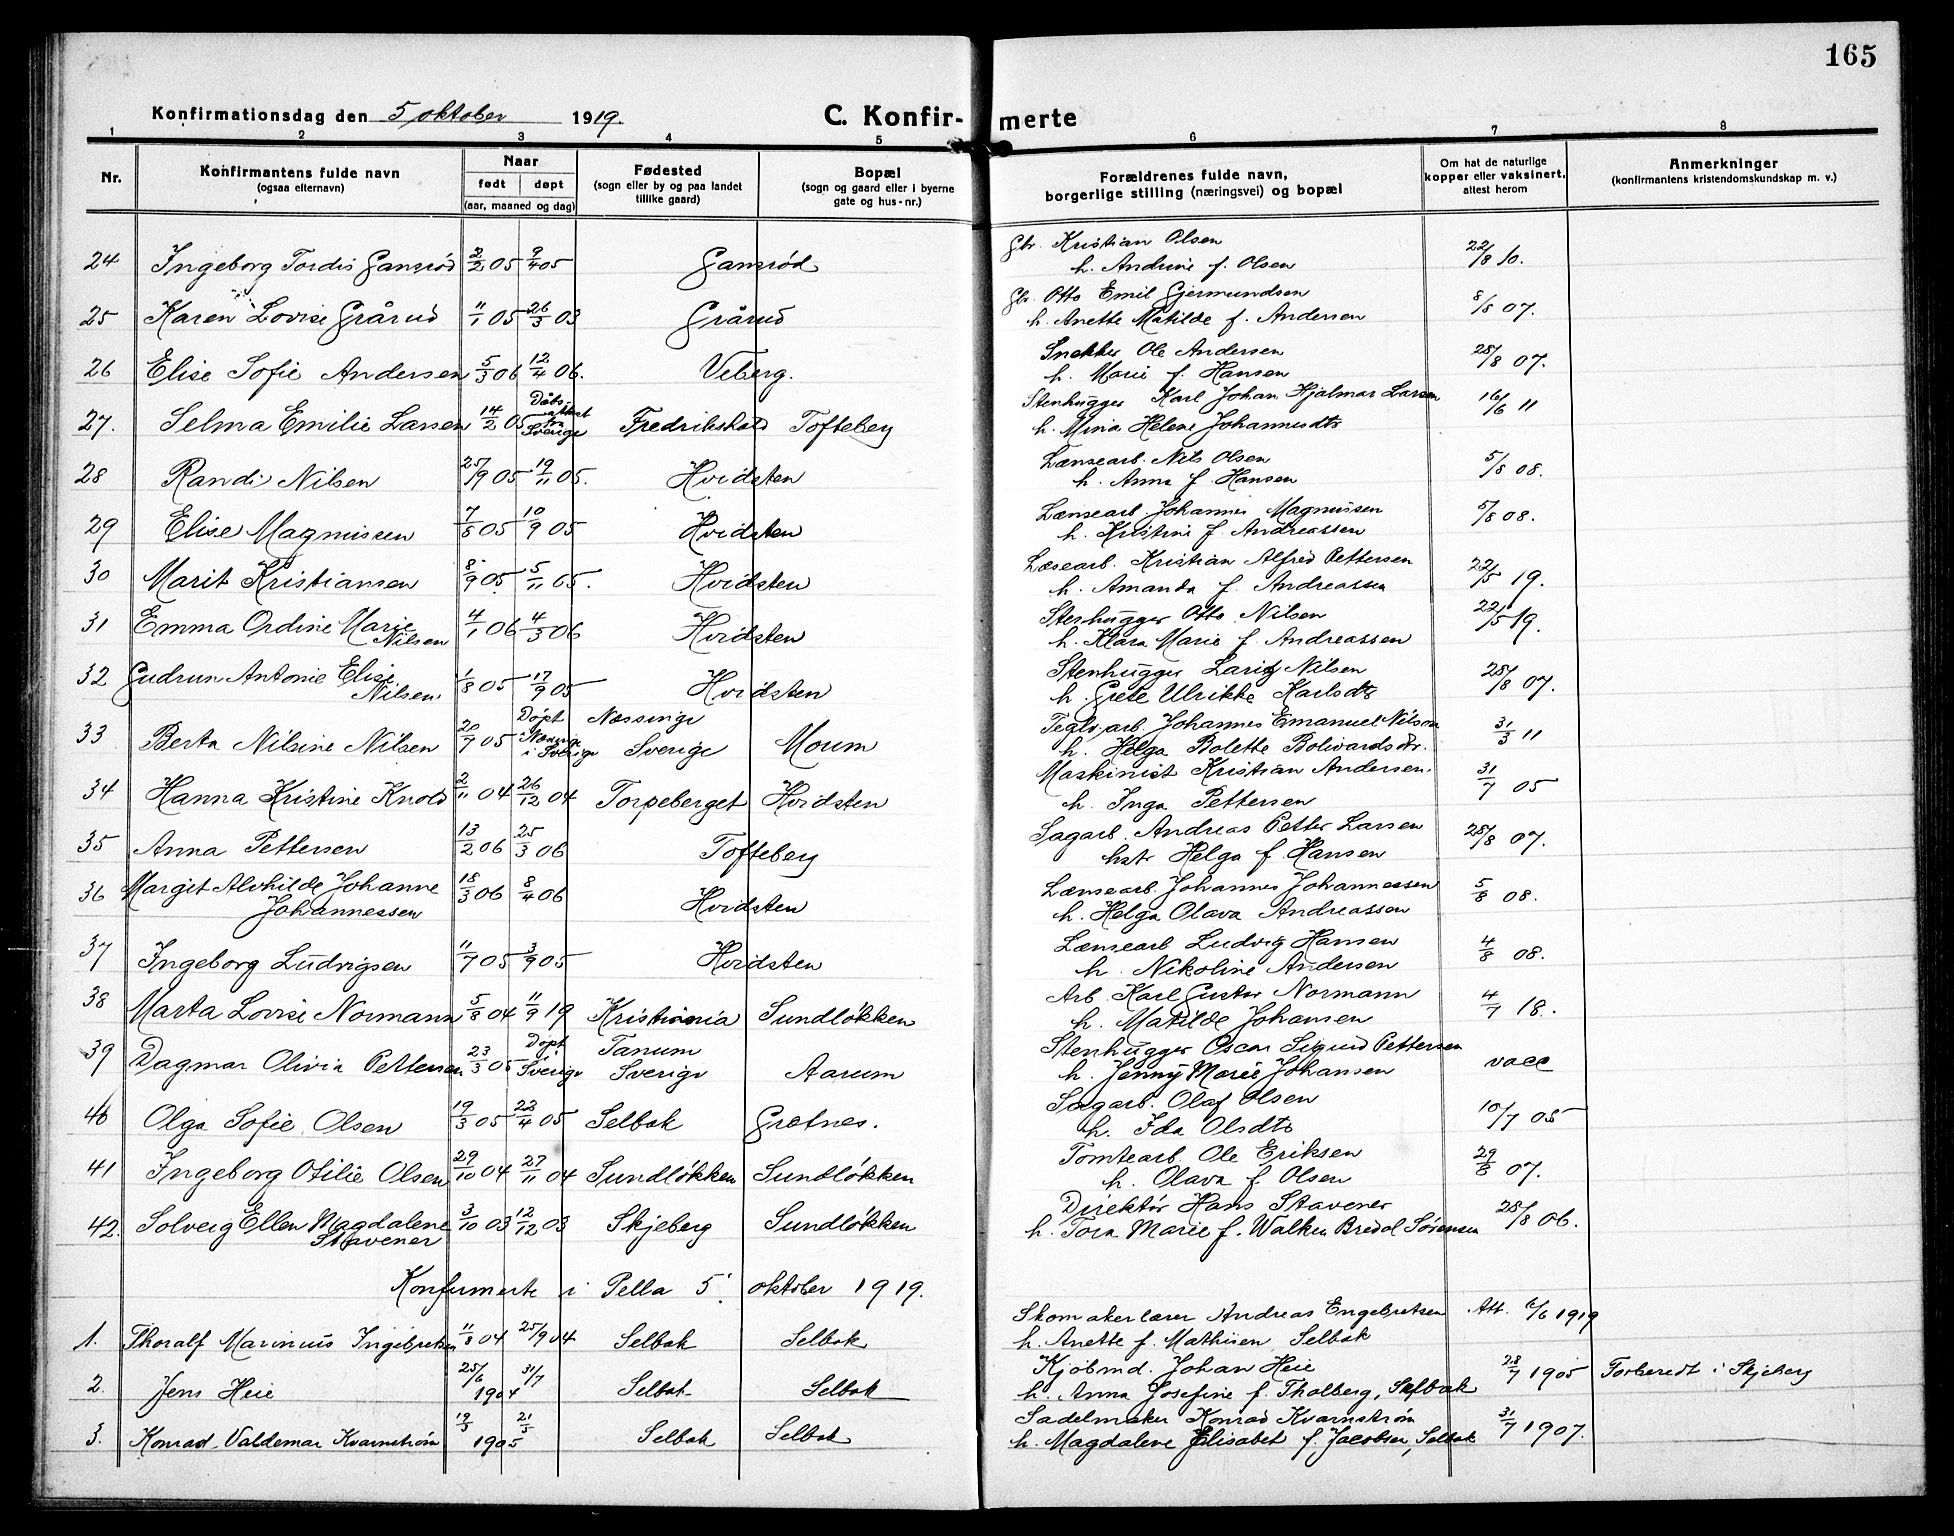 165
Konfirmationsdag den 5 oktober 1919. C. Konfir- merte
1 2 3 4 5 6 7 8
Nr. Konfirmantens fulde navn (ogsaa efternavn) Naar født døpt (aar, maaned og dag) Fødested (sogn eller by og paa landet tillike gaard) Bopæl (sogn og gaard eller i byerne gate og hus-nr.) Forældrenes fulde navn, borgerlige stilling (næringsvei) og bopæl Om hat de naturlige kopper eller vaksinert. attest herom Anmerkninger (konfirmantens kristendomskundskap m. v.)
24 Ingeborg Tordis Gansrød 2/2 05 9/4 05 Gansrød Gbr. Kristian Olsen 22/8 10.
h. Andrine f. Olsen
25 Karen Lovise Grårud 11/1 05 26/3 03 Grårud Gbr. Otto Emil Gjermundsen 8/8 07.
h. Anette Matilde f. Andersen
26 Elise Sofie Andersen 5/3 06 12/4 06. Veberg. Snekker Ole Andersen 28/8 07.
h. Marie f. Hansen
27. Selma Emilie Larsen 14/2 05 Dåbsattest fra Sverige Fredrikshald Tofteberg Stenhugger Karl Johan Hjalmar Larsen 16/6 11
h. Mina Helene Johannesdtr
28 Randi Nilsen 25/9 05 19/11 05. Hvidsten Lænsearb. Nils Olsen 5/8 08.
h. Anna f Hansen
29 Elise Magnussen 7/8 05 10/9 05 Hvidsten Lænsearb. Johannes Magnussen 5/8 08.
h. Kristine f. Andreassen
30 Marit Kristiansen 8/9 05 5/11 05. Hvidsten Læsearb. Kristian Alfred Pettersen 22/5 19.
h. Amanda f. Andreassen
31 Emma Ordine Marie Nilsen 4/1 06 4/3 06 Hvidsten Stenhugger Otto Nilsen 22/5 19.
h. Klara Marie f. Andreassen
32 Gudrun Antonie Elise Nilsen 1/8 05 17/9 05 Hvidsten Stenhugger Laritz Nilsen 28/8 07.
h. Grete Ulrikke Karlsdtr
33 Berta Nilsine Nilsen 20/7 05 Døpt i Næsinge i Sverige Næssinge Sverige Moum Teglv.arb. Johannes Emanuel Nilson 31/3 11
h. Helga Bolette Bolivardsdtr.
34 Hanna Kristine Knold 2/11 04 26/12 04 Torpeberget Hvidsten Maskinist Kristian Andersen. 31/7 05
h. Inga Pettersen
35 Anna Pettersen 13/2 06 25/3 06 Tofteberg Sagarb. Andreas Petter Larsen 28/8 07.
hstr Helga f. Hansen
36 Margit Alvhilde Johanne Johannessen 18/3 06 8/4 06 Hvidsten Lænsearb. Johannes Johannessen 5/8 08.
h. Helga Olava Andreassen
37 Ingeborg Ludvigsen 11/7 05 3/9 05 Hvidsten Lænsearb Ludvig Hansen 4/8 08.
h. Nikoline Andersen
38 Marta Lovise Normann 5/8 04 11/9 19 Kristiania Sundløkken Arb. Karl Gustav Normann 4/7 18.
h. Matilde Johansen
39 Dagmar Olivia Pettersen 23/3 05 Døpt i Sverige Tanum Sverige Aarum Stenhugger Oscar Sigurd Pettersen vacc
h. Jenny Marie Johansen
40 Olga Sofie Olsen 19/3 05 22/4 05 Selbak Gretnes. Sagarb. Olaf Olsen 10/7 05
h. Ida Olsdtr
41 Ingeborg Otilie Olsen 29/10 04 27/11 04 Sundløkken Sundløkken Tomtearb. Ole Eriksen 29/8 07.
h. Olava f Olsen
42. Solveig Ellen Magdalene Stavener 3/10 03 12/12 03 Skjeberg Sundløkken Direktør Hans Stavener 28/8 06.
h. Tora Marie f. Walken Bredol Sørensen
Konfirmerte i Pella 5. oktober 1919.
1. Thoralf Marinius Ingebretsen 11/8 04 25/9 04 Selbak Selbak Skomakerlærer Andreas Engebretsen Att. 6/6 1919
h. Anette f. Mathisen Selbak
2. Jens Heie 25/6 31/7 1904 Selbak Selbak Kjøbmd. Johan Heie 28/7 1905 Forberedt i Skjeberg
h. Anna Josefine f. Tholberg, Selbak
3. Konrad Valdemar Kvarnstrøm 19/3 21/5 1905 Selbak Selbak Sadelmaker Konrad Kvarnstrøm 31/7 1907.
h. Magdalene Elisabet f. Jacobsen, Selbak